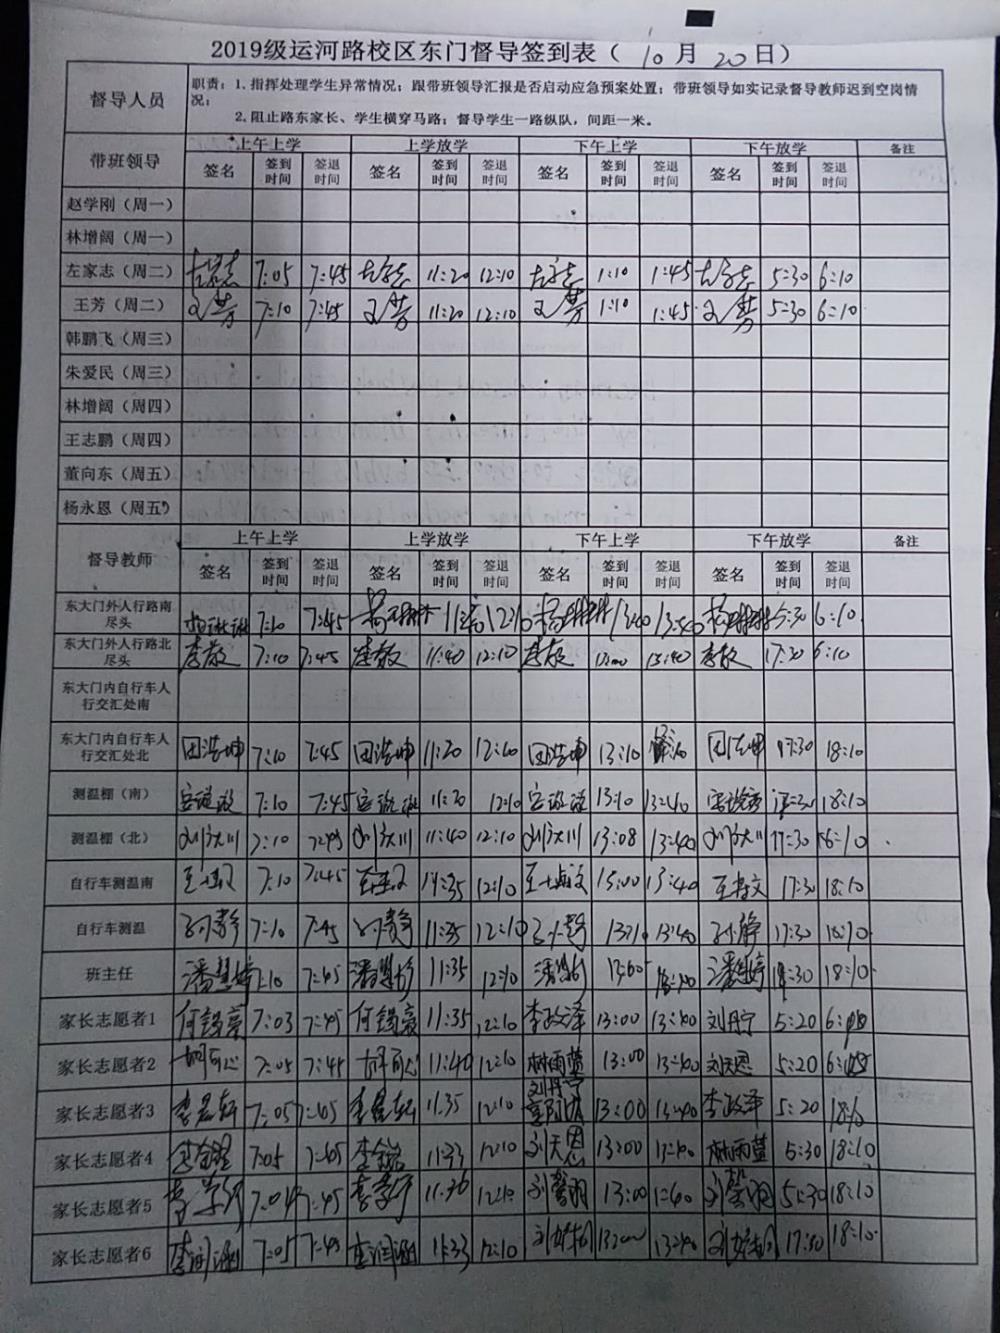 2019级运河路校区东门督导签到表（ 10 月 20 日）
督导人员 职责：1.指挥处理学生异常情况；跟带班领导汇报是否启动应急预案处置；带班领导如实记录督导教师迟到空岗情况；
2.阻止路东家长、学生横穿马路；督导学生一路纵队，间距一米。
带班领导 上午上学 上学放学 下午上学 下午放学 备注
签名 签到时间 签退时间 签名 签到时间 签退时间 签名 签到时间 签退时间 签名 签到时间 签退时间
赵学刚（周一）
林增阔（周一）
左家志（周二） 左家志 7:05 7:45 左家志 11:20 12:10 左家志 1:10 1:45 左家志 5:30 6:10
王芳（周二） 王芳 7:10 7:45 王芳 11:20 12:10 王芳 1:10 1:45 王芳 5:30 6:10
韩鹏飞（周三）
朱爱民（周三）
林增阔（周四）
王志鹏（周四）
董向东（周五）
杨永恩（周五）
督导教师 上午上学 上学放学 下午上学 下午放学 备注
签名 签到时间 签退时间 签名 签到时间 签退时间 签名 签到时间 签退时间 签名 签到时间 签退时间
东大门外人行路南尽头 7:10 7:45 12:10 13:40 5:30 6:10
东大门外人行路北尽头 李敏 7:10 7:45 李敏 11:40 12:10 李敏 13:40 李敏 17:30 6:10
东大门内自行车人行交汇处南
东大门内自行车人行交汇处北 田浩坤 7:10 7:45 田浩坤 11:20 12:10 田浩坤 13:10 田浩坤 17:30 18:10
测温棚（南） 7:10 7:45 11:20 12:10 13:10 13:40 18:10
测温棚（北） 刘洪川 7:10 7:45 刘洪川 11:40 12:10 刘洪川 13:08 13:40 刘洪川 17:30 18:10
自行车测温南 7:10 7:45 12:10 15:00 13:40 17:30 18:10
自行车测温 孙静 7:10 7:45 孙静 11:35 12:10 孙静 13:10 13:40 孙静 17:30 18:10
班主任 潘慧婷 7:10 7:45 潘慧婷 11:35 12:10 潘慧婷 13:00 潘慧婷 18:10
家长志愿者1 何锦豪 7:03 7:45 何锦豪 11:35 12:10 李政泽 13:00 13:40 刘丹宁 5:20
家长志愿者2 胡可心 7:05 7:45 胡可心 11:40 12:10 林雨萱 13:00 13:40 刘天恩 5:20
家长志愿者3 7:05 7:45 11:35 12:10 刘丹宁 13:00 13:40 李政泽 5:20
家长志愿者4 7:05 7:45 11:33 12:10 刘天恩 13:00 13:40 林雨萱 5:30 18:10
家长志愿者5 7:45 12:10 刘馨羽 13:00 刘馨羽 5:30 18:10
家长志愿者6 李润涵 7:05 7:45 李润涵 11:33 12:10 13:40 18:10